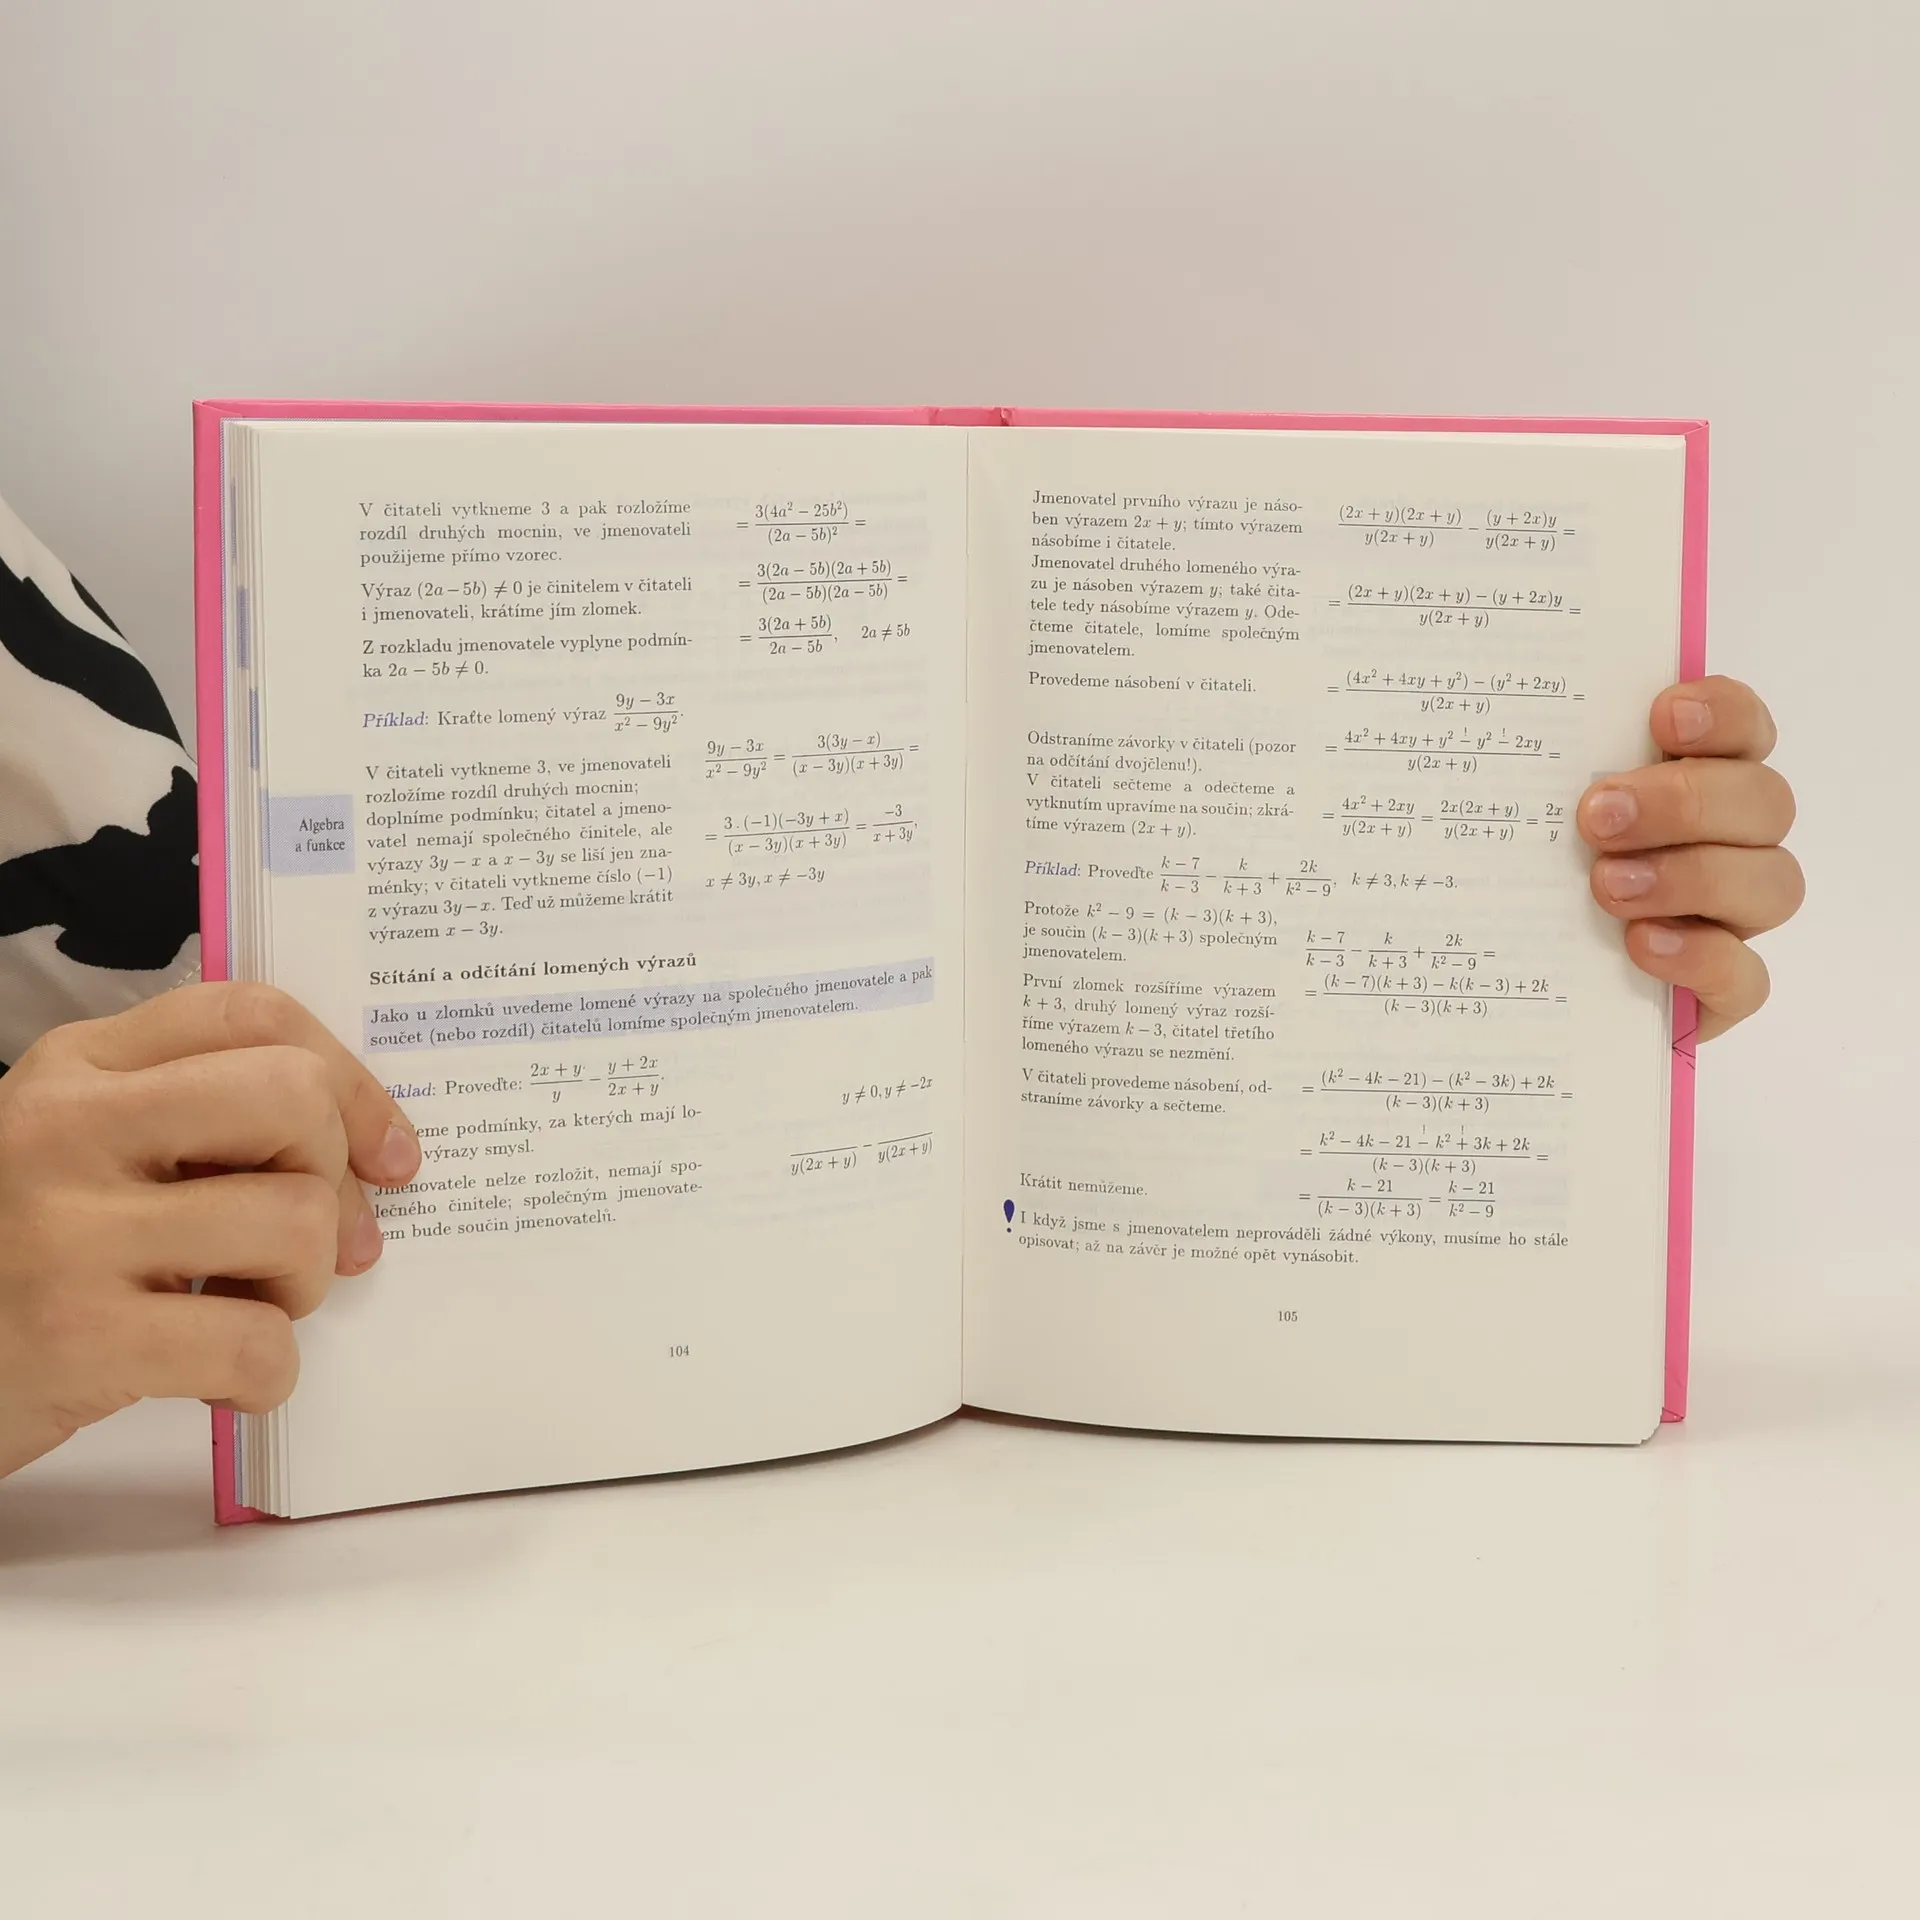 V čitateli vytkneme 3 a pak rozložíme
rozdíl druhých mocnin, ve jmenovateli
použijeme přímo vzorec.
= 3(4a² − 25b²)/(2a − 5b)² =
Výraz (2a − 5b) ≠ 0 je činitelem v čitateli
i jmenovateli, krátíme jím zlomek.
= 3(2a − 5b)(2a + 5b)/(2a − 5b)(2a − 5b) =
Z rozkladu jmenovatele vyplyne podmín-
ka 2a − 5b ≠ 0.
= 3(2a + 5b)/2a − 5b, 2a ≠ 5b
Příklad: Kraťte lomený výraz 9y − 3x/x² − 9y².
V čitateli vytkneme 3, ve jmenovateli
rozložíme rozdíl druhých mocnin;
doplníme podmínku; čitatel a jmeno-
vatel nemají společného činitele, ale
výrazy 3y − x a x − 3y se liší jen zna-
ménky; v čitateli vytkneme číslo (−1)
z výrazu 3y − x. Teď už můžeme krátit
výrazem x − 3y.
9y − 3x/x² − 9y² = 3(3y − x)/(x − 3y)(x + 3y) =
= 3 . (−1)(−3y + x)/(x − 3y)(x + 3y) = −3/x + 3y,
x ≠ 3y, x ≠ −3y
Algebra
a funkce
Sčítání a odčítání lomených výrazů
Jako u zlomků uvedeme lomené výrazy na společného jmenovatele a pak
součet (nebo rozdíl) čitatelů lomíme společným jmenovatelem.
Proveďte: 2x + y/y − y + 2x/2x + y.
podmínky, za kterých mají lo-
výrazy smysl.
y ≠ 0, y ≠ −2x
Jmenovatele nelze rozložit, nemají spo-
lečného činitele; společným jmenovate-
lem bude součin jmenovatelů.
/y(2x + y) − /y(2x + y)
104
Jmenovatel prvního výrazu je náso-
ben výrazem 2x + y; tímto výrazem
násobíme i čitatele.
(2x + y)(2x + y)/y(2x + y) − (y + 2x)y/y(2x + y) =
Jmenovatel druhého lomeného výra-
zu je násoben výrazem y; také čita-
tele tedy násobíme výrazem y. Ode-
čteme čitatele, lomíme společným
jmenovatelem.
= (2x + y)(2x + y) − (y + 2x)y/y(2x + y) =
Provedeme násobení v čitateli.
= (4x² + 4xy + y²) − (y² + 2xy)/y(2x + y) =
Odstraníme závorky v čitateli (pozor
na odčítání dvojčlenu!).
! !
= 4x² + 4xy + y² − y² − 2xy/y(2x + y) =
V čitateli sečteme a odečteme a
vytknutím upravíme na součin; zkrá-
tíme výrazem (2x + y).
= 4x² + 2xy/y(2x + y) = 2x(2x + y)/y(2x + y) = 2x/y
Příklad: Proveďte k − 7/k − 3 − k/k + 3 + 2k/k² − 9, k ≠ 3, k ≠ −3.
Protože k² − 9 = (k − 3)(k + 3),
je součin (k − 3)(k + 3) společným
jmenovatelem.
k − 7/k − 3 − k/k + 3 + 2k/k² − 9 =
První zlomek rozšíříme výrazem
k + 3, druhý lomený výraz rozší-
říme výrazem k − 3, čitatel třetího
lomeného výrazu se nezmění.
= (k − 7)(k + 3) − k(k − 3) + 2k/(k − 3)(k + 3) =
V čitateli provedeme násobení, od-
straníme závorky a sečteme.
= (k² − 4k − 21) − (k² − 3k) + 2k/(k − 3)(k + 3) =
! !
= k² − 4k − 21 − k² + 3k + 2k/(k − 3)(k + 3) =
Krátit nemůžeme.
= k − 21/(k − 3)(k + 3) = k − 21/k² − 9
! I když jsme s jmenovatelem neprováděli žádné výkony, musíme ho stále
opisovat; až na závěr je možné opět vynásobit.
105